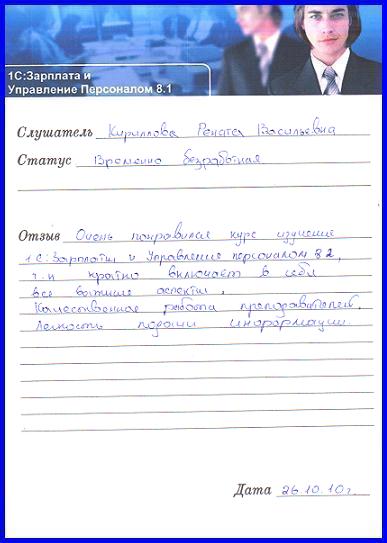 1С:Зарплата и
Управление Персоналом 8.1
Слушатель Кириллова Рената Васильевна
Статус Временно безработная
Отзыв Очень понравился курс изучения
1С:Зарплаты и Управление персоналом 8.2,
т.к кратко включает в себя
все важные аспекты,
Качественное работа преподавателей,
Легкость подачи информации.
Дата 26.10.10г.